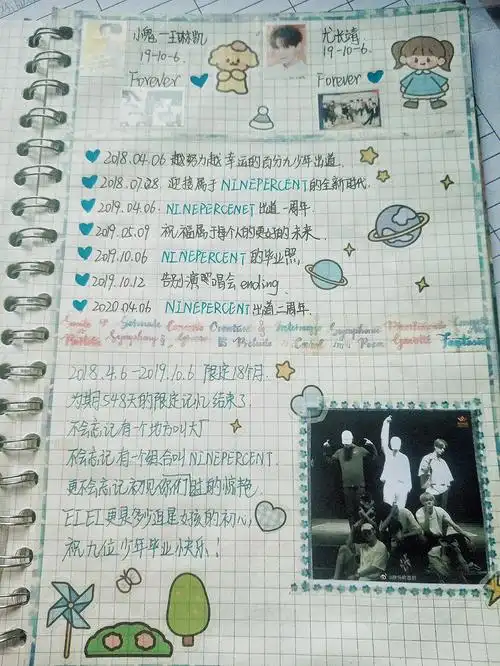 小鬼—王琳凯
19-10-6.
Forever
尤长靖.
19-10-6.
Forever
2018.04.06 越努力越幸运的百分九少年出道.
2018.07.28 迎接属于NINEPERCENT的全新时代.
2019.04.06. NINEPERCENET出道一周年.
2019.05.09 祝福属于每个人的更好的未来.
2019.10.06 NINEPERCENT的毕业照.
2019.10.12 告别演唱会ending.
2020.04.06 NINEPERCENT出道二周年.
2018.4.6-2019.10.6 限定18个月.
为期548天的限定记忆结束了
不会忘记有一个地方叫大厂
不会忘记有一个组合叫NINEPERCENT.
更不会忘记初见你们时的惊艳
EIEI更是多少追星女孩的初心,
祝九位少年毕业快乐!